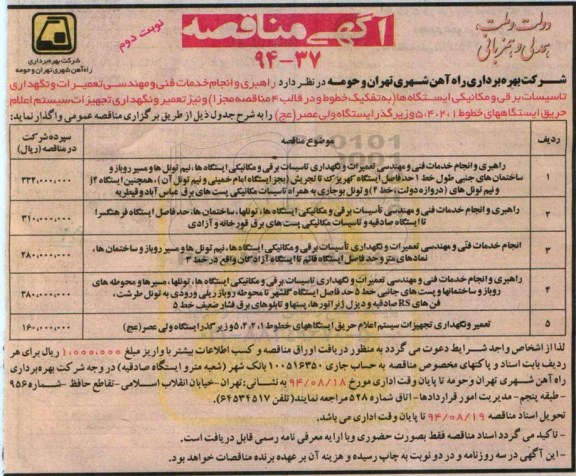 دولت و ملت؛
همدلی و همزبانی
آگهی مناقصه
۹۴-۳۷
نوبت دوم
شرکت بهره‌برداری
راه آهن شهری تهران و حومه
شرکت بهره‌برداری راه‌آهن شهری تهران و حومه در نظر دارد راهبری و انجام خدمات فنی و مهندسی تعمیرات و نگهداری
تاسیسات برقی و مکانیکی ایستگاه‌ها (به تفکیک خطوط و در قالب ۴ مناقصه مجزا) و نیز تعمیر و نگهداری تجهیزات سیستم اعلام
حریق ایستگاههای خطوط ۵،۴،۲،۱ و زیرگذر ایستگاه ولی عصر (عج) را به شرح جدول ذیل از طریق برگزاری مناقصه عمومی واگذار نماید:
ردیف
موضوع مناقصه
سپرده شرکت
در مناقصه (ریال)
۱
راهبری و انجام خدمات فنی و مهندسی تعمیرات و نگهداری تاسیسات برقی و مکانیکی ایستگاه ها، نیم تونل ها و مسیر روباز و
ساختمان های جنبی طول خط ۱ حد فاصل ایستگاه کهریزک تا تجریش (بجز ایستگاه امام خمینی و نیم تونل آن)، همچنین ایستگاه j۲
و نیم تونل های (دروازه دولت، خط ۴) و تونل بوجاری به همراه تاسیسات مکانیکی پست های برق عباس آباد و قیطریه
۳۲۲،۰۰۰،۰۰۰
۲
راهبری و انجام خدمات فنی و مهندسی تأسیسات برقی و مکانیکی ایستگاه ها، تونلها، ساختمان ها، حد فاصل ایستگاه فرهنگسرا
تا ایستگاه صادقیه و تاسیسات مکانیکی پست های برق قورخانه و آزادی
۳۱۰،۰۰۰،۰۰۰
۳
انجام خدمات فنی و مهندسی تعمیرات و نگهداری تأسیسات برقی و مکانیکی ایستگاه ها، نیم تونل ها و مسیر روباز و ساختمان ها،
نمادهای مترو حد فاصل ایستگاه قائم تا ایستگاه آزادگان واقع در خط ۳
۲۸۰،۰۰۰،۰۰۰
۴
راهبری و انجام خدمات فنی و مهندسی تعمیرات و نگهداری تاسیسات برقی و مکانیکی ایستگاه ها، تونلها، مسیرها و محوطه های
روباز و ساختمانها و پست های جانبی خط ۵ حد فاصل ایستگاه گلشهر تا محوطه روباز ریلی ورودی به تونل طرشت،
فن های RS صادقیه و دیزل ژنراتورها، پستها و تابلوهای برق فشار ضعیف خط ۵
۳۸۰،۰۰۰،۰۰۰
۵
تعمیر و نگهداری تجهیزات سیستم اعلام حریق ایستگاههای خطوط ۵،۴،۲،۱ و زیرگذر ایستگاه ولی عصر (عج)
۱۶۰،۰۰۰،۰۰۰
لذا از اشخاص واجد شرایط دعوت می گردد به منظور دریافت اوراق مناقصه و کسب اطلاعات بیشتر با واریز مبلغ ۱،۰۰۰،۰۰۰ ریال برای هر
ردیف بابت اسناد و پاکتهای مخصوص مناقصه به حساب جاری ۱۰۰۵۱۶۳۵۰ بانک شهر (شعبه مترو ایستگاه صادقیه) در وجه شرکت بهره برداری
راه آهن شهری تهران و حومه تا پایان وقت اداری مورخ ۹۴/۰۸/۱۸ به نشانی: تهران - خیابان انقلاب اسلامی - تقاطع حافظ - شماره ۹۵۶
- طبقه پنجم - مدیریت امور قراردادها - اتاق شماره ۵۲۸ مراجعه نمایند (تلفن ۶۴۵۳۴۵۱۷).
تحویل اسناد مناقصه ۹۴/۰۸/۱۹ تا پایان وقت اداری می باشد.
- تاکید می گردد اسناد مناقصه فقط بصورت حضوری و با ارایه معرفی نامه رسمی قابل دریافت است.
- این آگهی در سه روزنامه و در دو نوبت به چاپ رسیده و هزینه آن بر عهده برنده مناقصات خواهد بود.